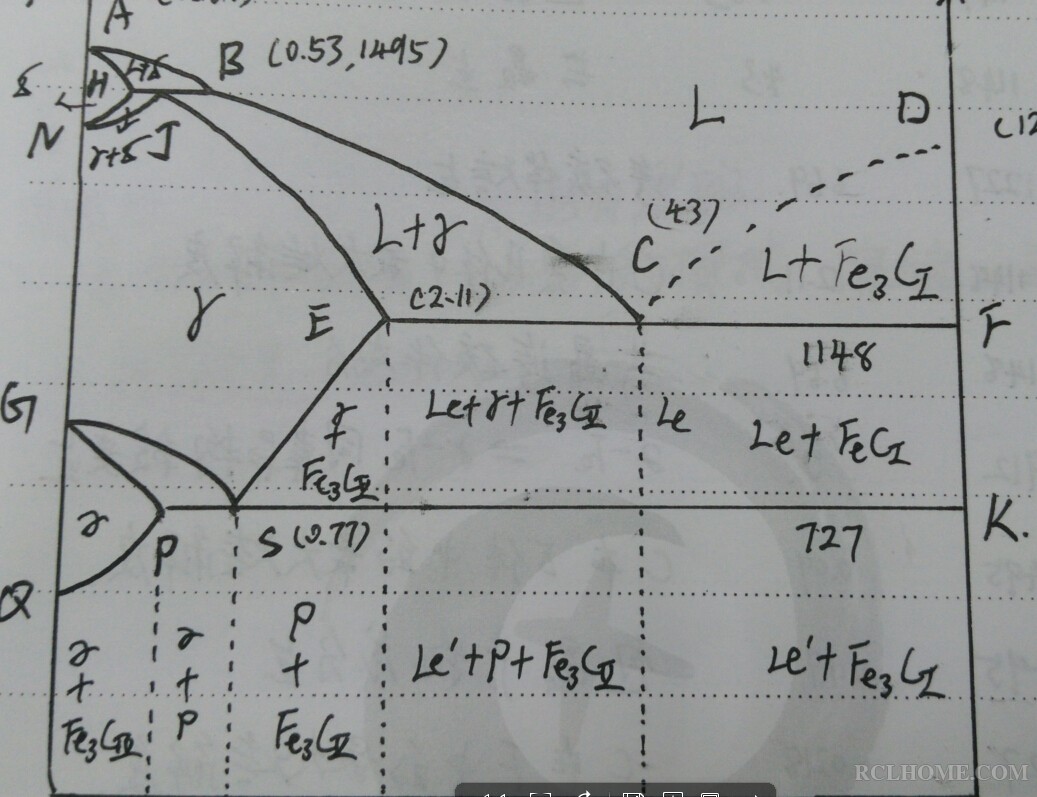 A
B (0.53,1495)
L+δ
H
δ
N
γ+δ
J
L
D
(12
L+γ
(43)
C
L+Fe₃CⅠ
γ
E
(2.11)
F
1148
G
γ
+
Fe₃CⅡ
Le+γ+Fe₃CⅡ
Le
Le+FeCⅠ
P
S (0.77)
727
K.
Q
+
Fe₃CⅢ
+
P
P
+
Fe₃CⅡ
Le'+P+Fe₃CⅡ
Le'+Fe₃CⅠ
RCLHOME.COM